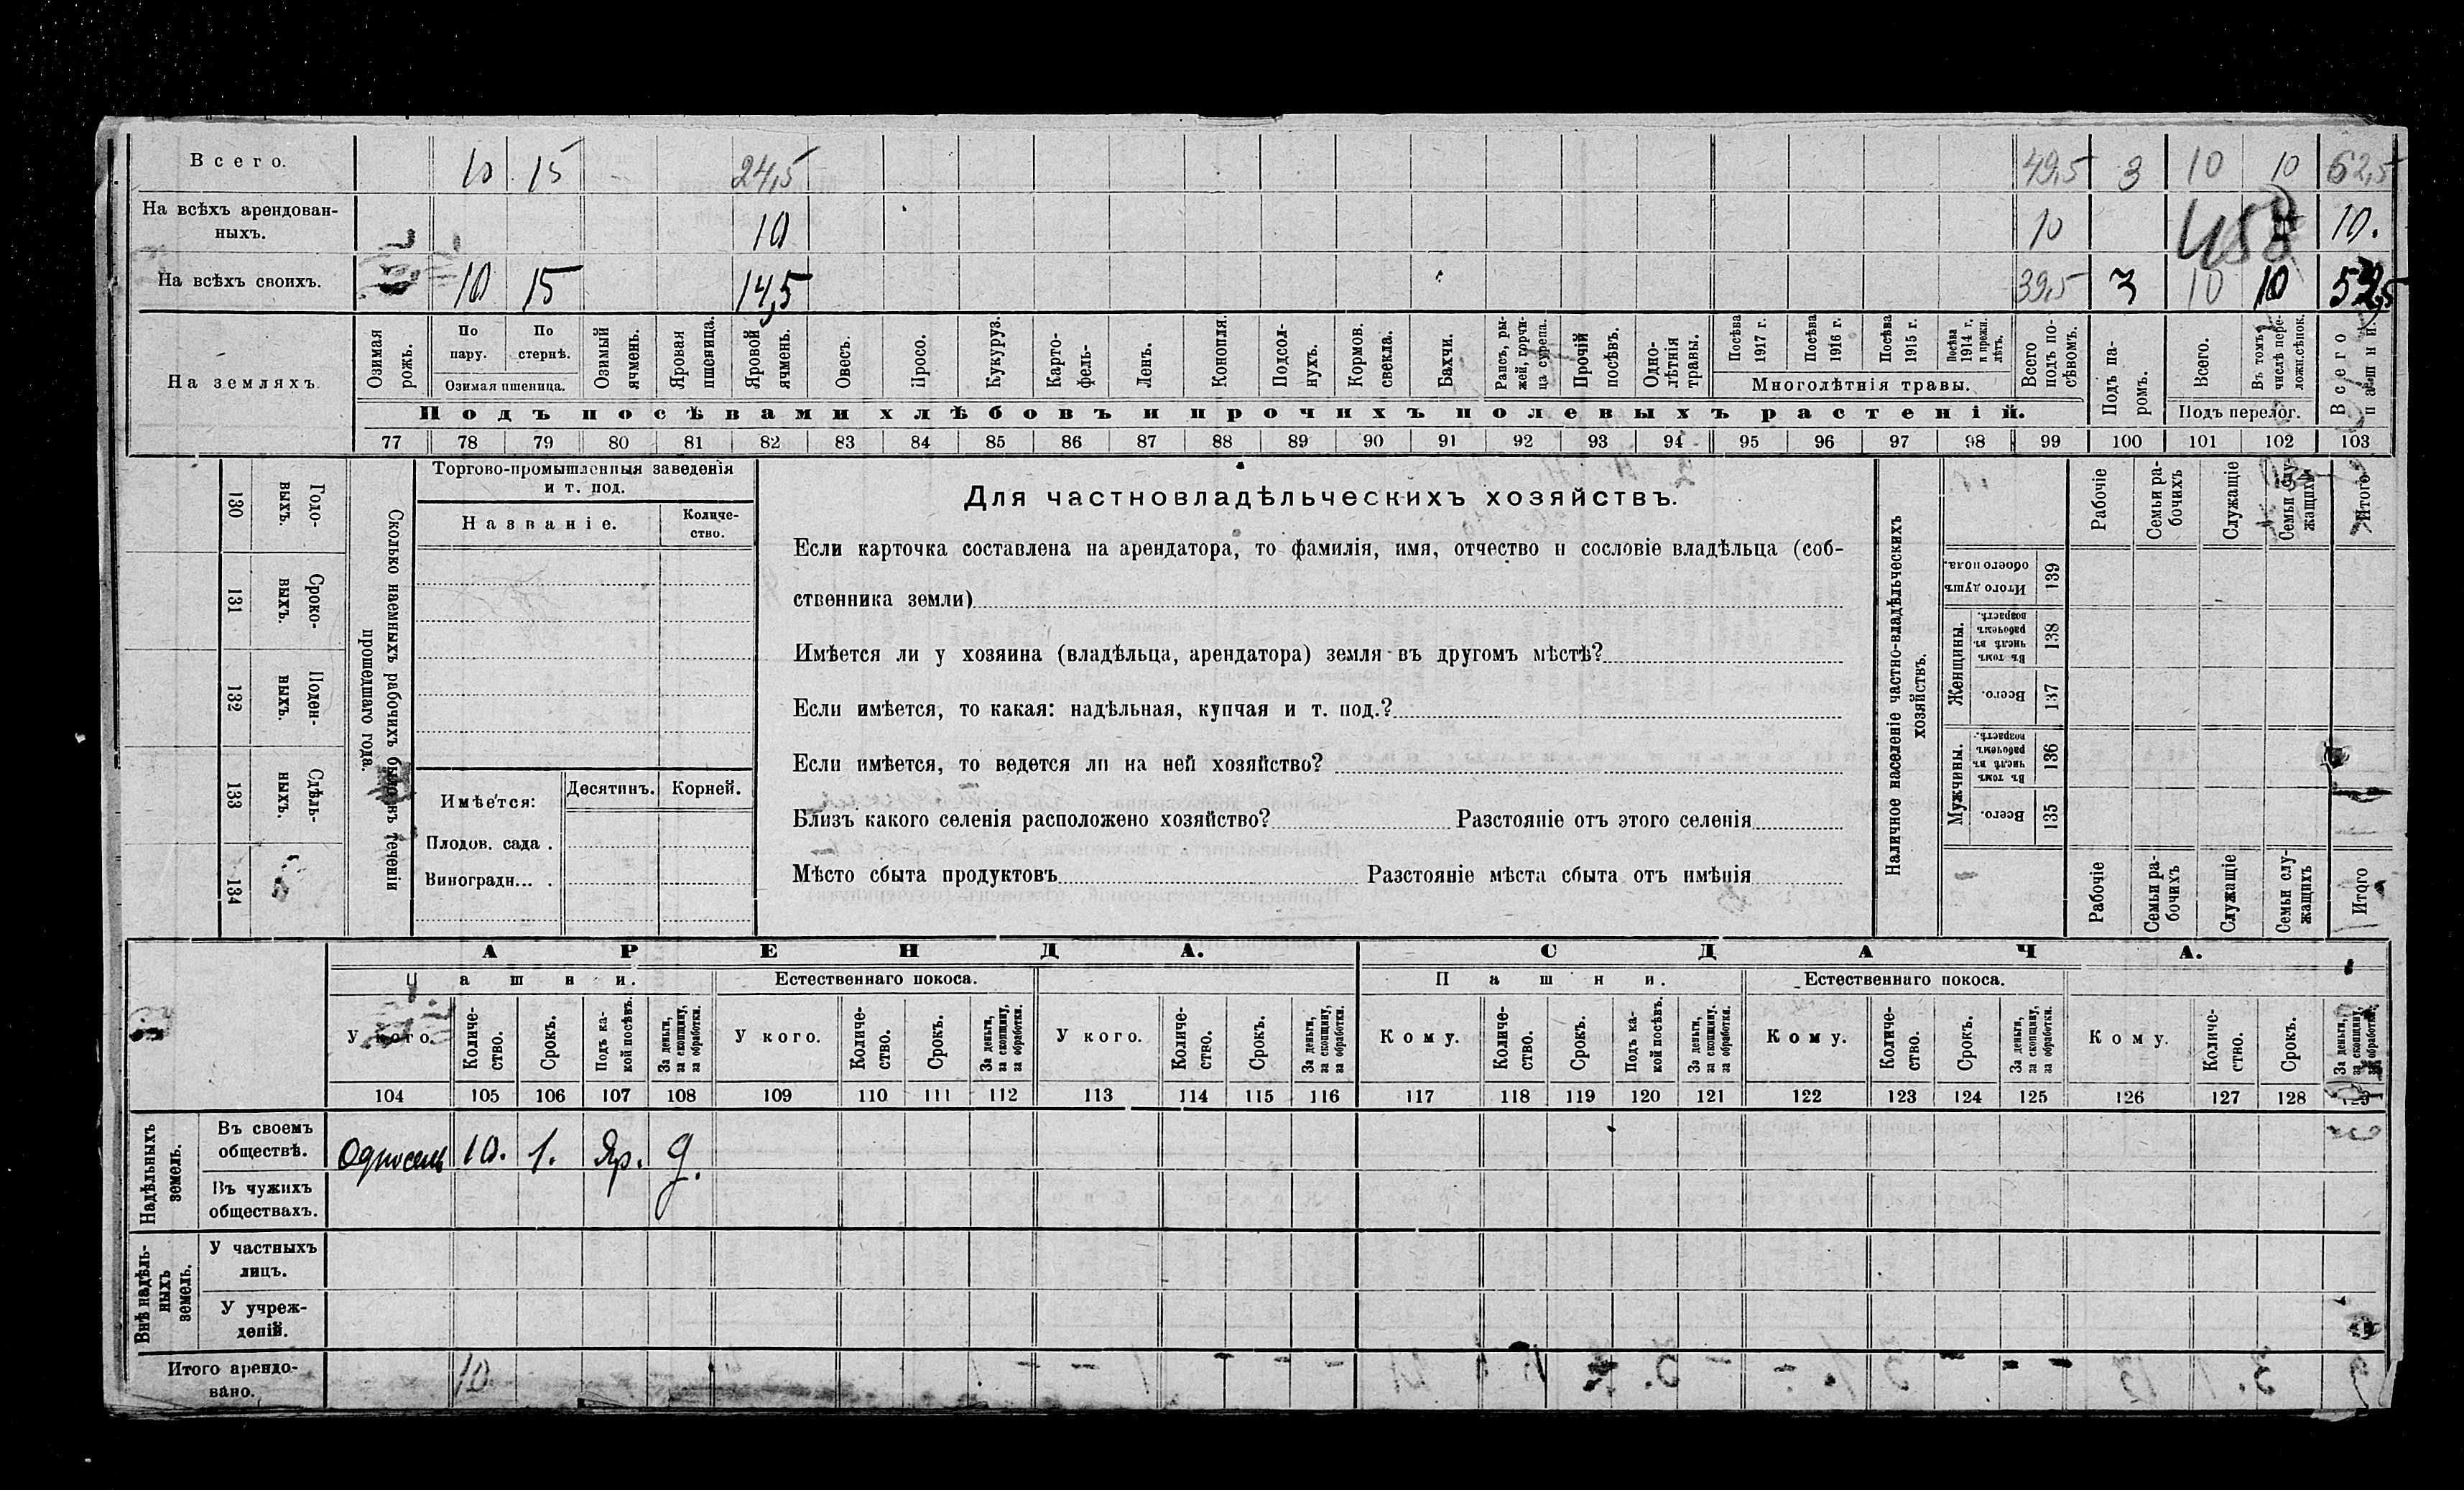 Всего. 10 15 24,5 49,5 3 10 10 62,5
На всѣхъ арендован-
ныхъ. 10 10 458 10.
На всѣхъ своихъ. 10 15 14,5 39,5 3 10 10 52,5
На земляхъ.
Озимая рожь.
По пару.
По стернѣ.
Озимая пшеница.
Озимый ячмень.
Яровая пшеница.
Яровой ячмень.
Овесъ.
Просо.
Кукуруз.
Карто-
фель-
Ленъ.
Конопля.
Подсол-
нухъ.
Кормов.
свекла.
Бахчи.
Рапсъ, ры-
жей, горчи-
ца сурепа.
Прочій
посѣвъ.
Одно-
лѣтнія
травы.
Посѣва
1917 г.
Посѣва
1916 г.
Посѣва
1915 г.
Посѣва
1914 г.
и прежн.
лѣтъ.
Многолѣтнія травы.
Всего
подъ по-
сѣвомъ.
Подъ па-
ромъ.
Всего.
Въ томъ
числѣ пере-
ложн.сѣнок.
Подъ перелог.
Всего
пашни.
Подъ посѣвами хлѣбовъ и прочихъ полевыхъ растеній.
77 78 79 80 81 82 83 84 85 86 87 88 89 90 91 92 93 94 95 96 97 98 99 100 101 102 103
130 Годо-
выхъ.
131 Сроко-
выхъ.
132 Поден-
ныхъ.
133 Сдѣль-
ныхъ.
134
Сколько наемныхъ рабочихъ было въ теченіи
прошедшаго года.
Торгово-промышленныя заведенія
и т. под.
Названіе.
Количе-
ство.
Имѣется:
Десятинъ.
Корней.
Плодов. сада .
Виноградн... .
Для частновладѣльческихъ хозяйствъ.
Если карточка составлена на арендатора, то фамилія, имя, отчество и сословіе владѣльца (соб-
ственника земли)
Имѣется ли у хозяина (владѣльца, арендатора) земля въ другомъ мѣстѣ?
Если имѣется, то какая: надѣльная, купчая и т. под.?
Если имѣется, то ведется ли на ней хозяйство?
Близъ какого селенія расположено хозяйство? Разстояніе отъ этого селенія
Мѣсто сбыта продуктовъ Разстояніе мѣста сбыта отъ имѣнія
Наличное населеніе частно-владѣльческихъ
хозяйствъ.
Рабочіе
Семьи ра-
бочихъ
Служащіе
Семьи слу-
жащихъ
Итого
Итого душъ
обоего пола.
139
Женщины.
Въ томъ
числѣ въ
рабочемъ
возрастѣ.
138
Всего.
137
Мужчины.
Въ томъ
числѣ въ
рабочемъ
возрастѣ.
136
Всего.
135
Рабочіе
Семьи ра-
бочихъ
Служащіе
Семьи слу-
жащихъ
Итого
АРЕНДА.
СДАЧА.
Пашни.
Естественнаго покоса.
Пашни.
Естественнаго покоса.
У кого.
Количе-
ство.
Срокъ.
Подъ ка-
кой посѣвъ.
За деньги,
за скопщину,
за обработки.
У кого.
Количе-
ство.
Срокъ.
За деньги,
за скопщину,
за обработки.
У кого.
Количе-
ство.
Срокъ.
За деньги,
за скопщину,
за обработки.
Кому.
Количе-
ство.
Срокъ.
Подъ ка-
кой посѣвъ.
За деньги,
за скопщину,
за обработки.
Кому.
Количе-
ство.
Срокъ.
За деньги,
за скопщину,
за обработки.
Кому.
Количе-
ство.
Срокъ.
За деньги,
за скопщину,
за обработки.
104 105 106 107 108 109 110 111 112 113 114 115 116 117 118 119 120 121 122 123 124 125 126 127 128 129
Надѣльныхъ
земель.
Въ своемъ
обществѣ.
Односель 10. 1. Яр. д.
Въ чужихъ
обществахъ.
Внѣ надѣль-
ныхъ
земель.
У частныхъ
лицъ.
У учреж-
деній.
Итого арендо-
вано.
10